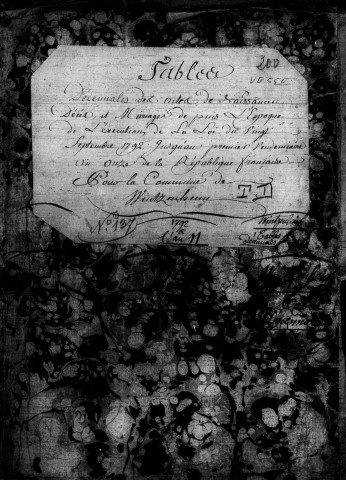 200
Tables
Décennales des actes de Naissances
Décès et Mariages depuis L'Epoque
de L'exécution de La Loi du vingt
Septembre 1792 Jusqu'au premier Vendemiaire
an onze de la République française
Pour la Commune de
Wintzenheim
TD
N° 137
1792
à
l'an 11